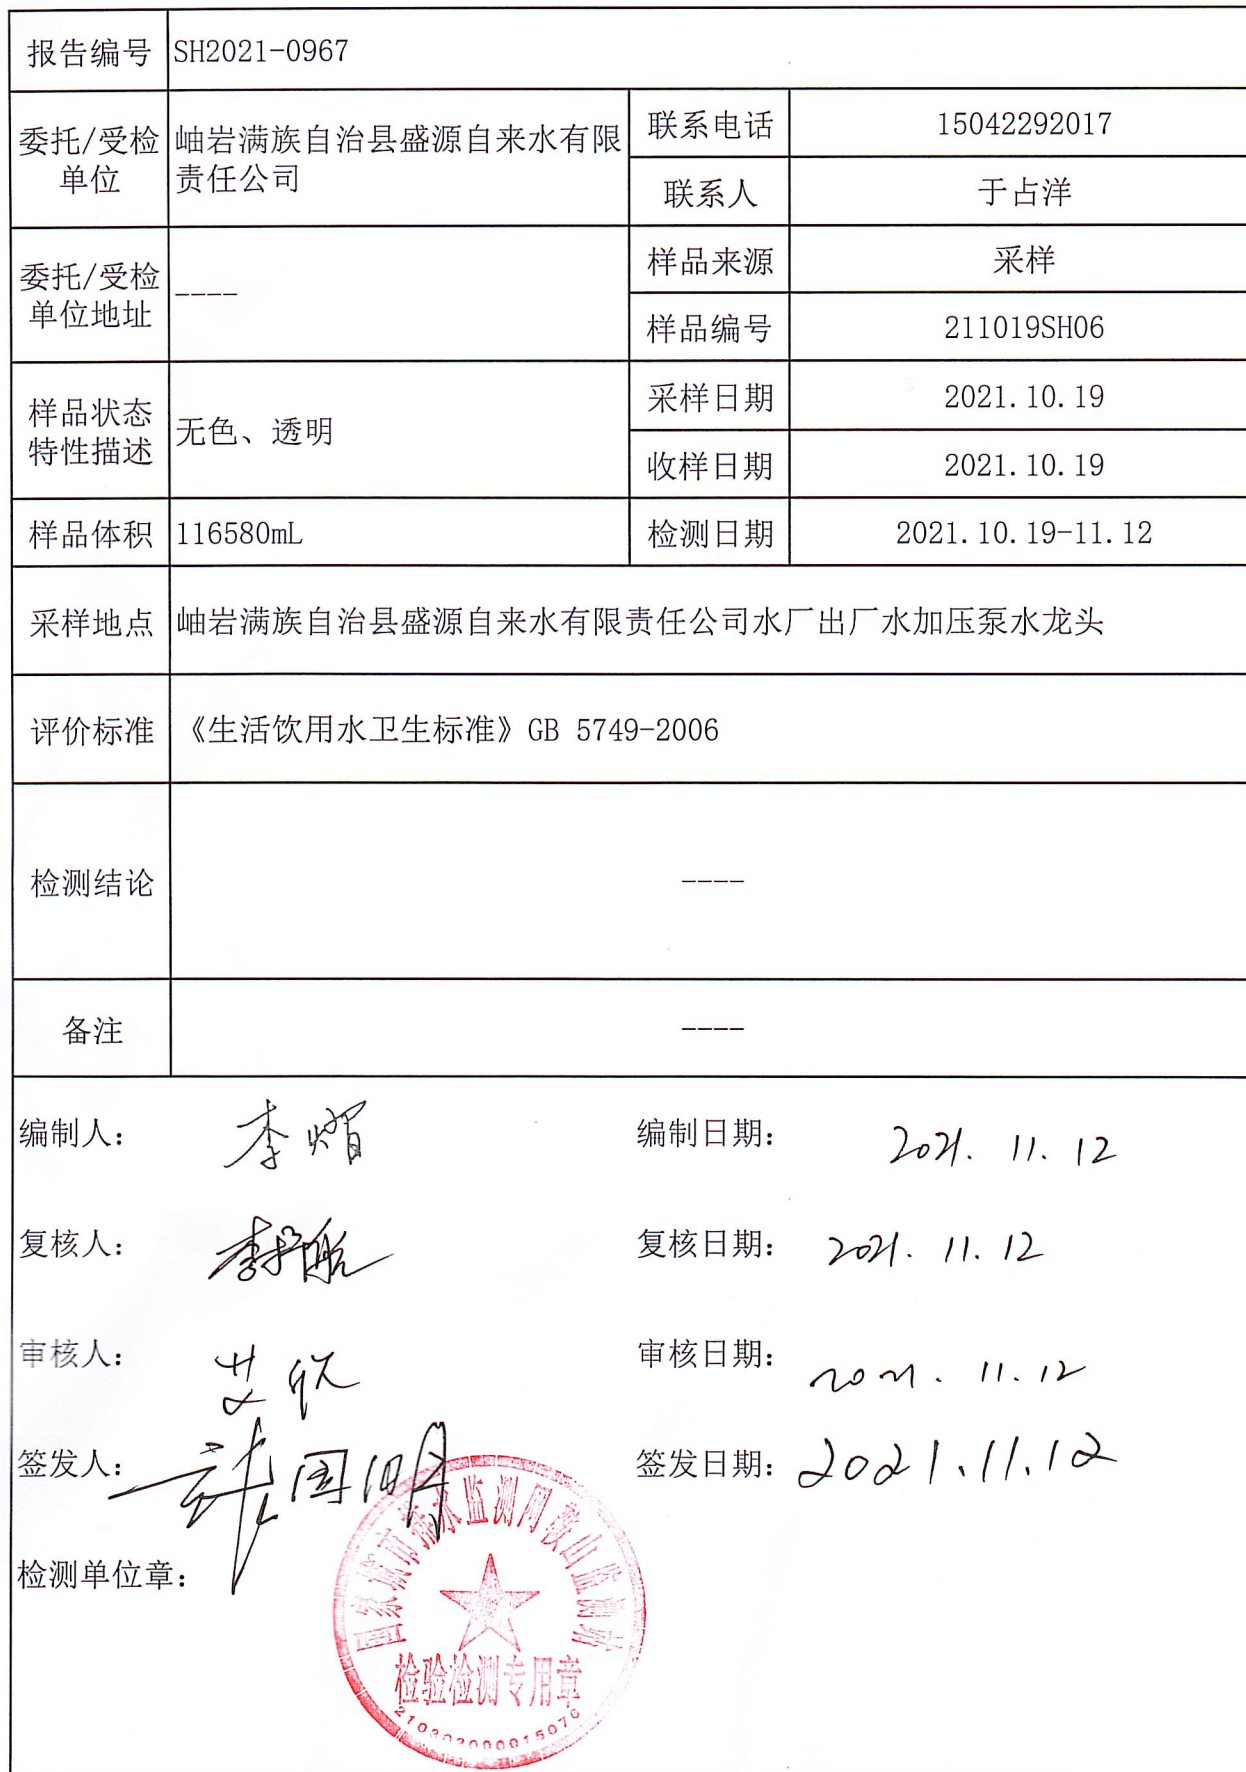 报告编号 SH2021-0967
委托/受检单位 岫岩满族自治县盛源自来水有限
责任公司
联系电话 15042292017
联系人 于占洋
委托/受检
单位地址 ----
样品来源 采样
样品编号 211019SH06
样品状态
特性描述 无色、透明
采样日期 2021.10.19
收样日期 2021.10.19
样品体积 116580mL 检测日期 2021.10.19-11.12
采样地点 岫岩满族自治县盛源自来水有限责任公司水厂出厂水加压泵水龙头
评价标准 《生活饮用水卫生标准》GB 5749-2006
检测结论 ----
备注 ----
编制人： 李熠 编制日期： 2021.11.12
复核人： 复核日期： 2021.11.12
审核人： 审核日期： 2021.11.12
签发人： 签发日期： 2021.11.12
检测单位章：
国家城市供水监测网鞍山监测站
检验检测专用章